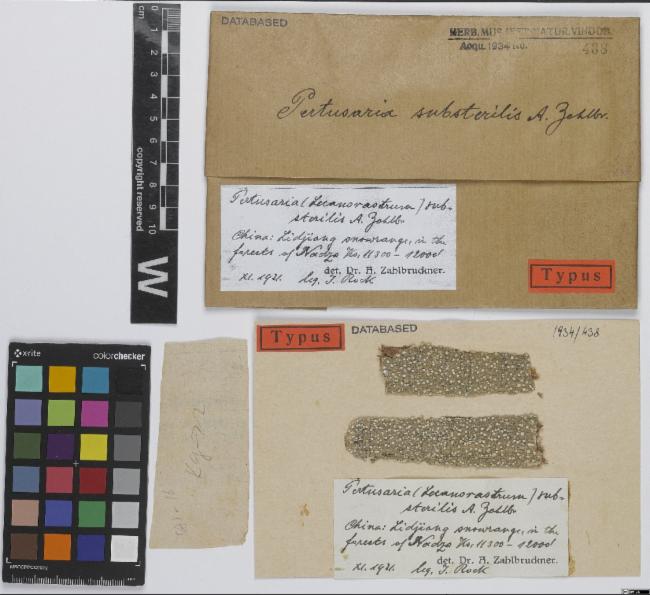 DATABASED
HERB. MUS. HIST. NATUR. VINDOB.
Acqu. 1934 No. 438
Pertusaria substerilis A. Zahlbr.
Pertusaria (Lecanorastrum) sub-
sterilis A. Zahlbr.
China: Lidjiang snowrange, in the
forests of Nadza Ho, 11300 - 12000'
det. Dr. A. Zahlbruckner.
XI. 1921. leg. J. Rock
Typus
cm 0 1 2 3 4 5 6 7 8 9 10
copyright reserved
W
Typus
DATABASED
1934/438
Pertusaria (Lecanorastrum) sub-
sterilis A. Zahlbr.
China: Lidjiang snowrange, in the
forests of Nadza Ho, 11300 - 12000'
det. Dr. A. Zahlbruckner.
XI. 1921. leg. J. Rock
x-rite colorchecker